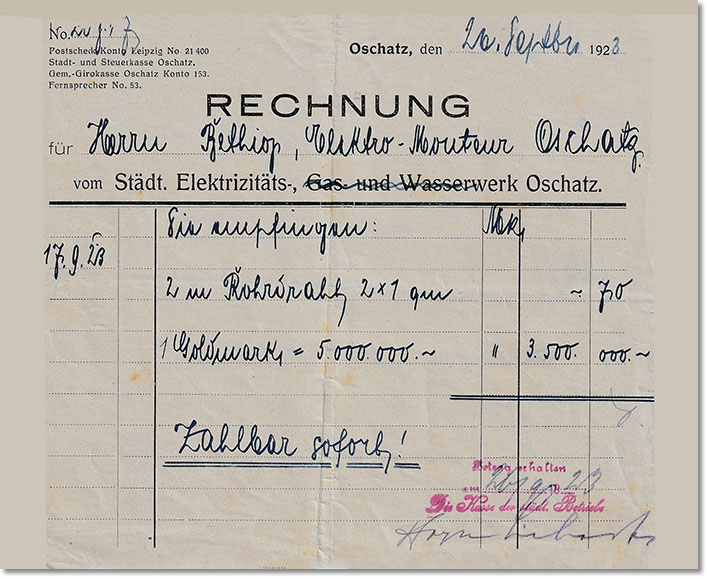 No.
Postscheck-Konto Leipzig No. 21 400
Stadt- und Steuerkasse Oschatz.
Gem.-Girokasse Oschatz Konto 153.
Fernsprecher No. 53.
Oschatz, den 20. Septbr 1923
RECHNUNG
für Herrn Bethiop, Elektro-Monteur Oschatz.
vom Städt. Elektrizitäts-, Gas- und Wasserwerk Oschatz.
Sie empfingen: Mk,
17. 9. 23
2 m Rohrdraht 2×1 qm ~ 70
1 Goldmark = 5.000 000. ~ " 3.500 000. ~
Zahlbar sofort!
Betrag erhalten
am 26/9 1923
Die Kasse der städt. Betriebe